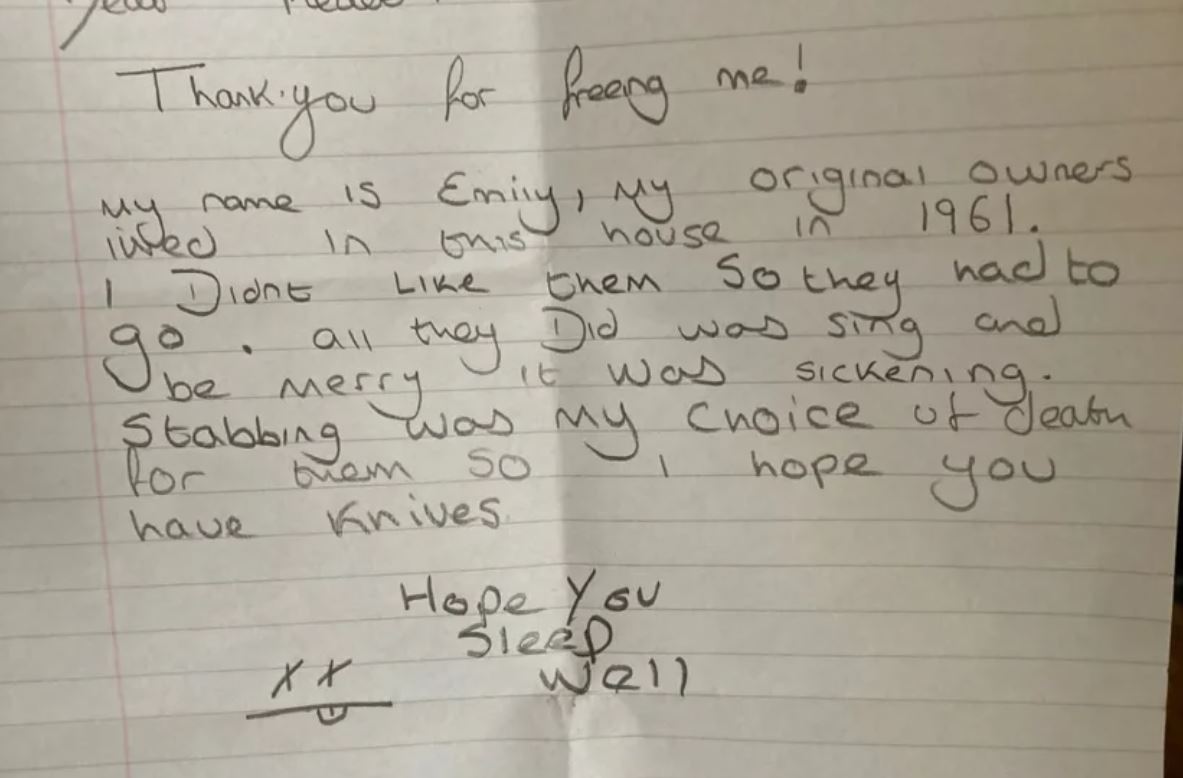 Thank.you for freeing me!
My name is Emily, My original owners
lived in this house in 1961.
I Didnt Like them So they had to
go. all they Did was sing and
be merry it was sickening.
Stabbing was my choice of death
for them so I hope you
have Knives.
Hope You
Sleep
Well
XX